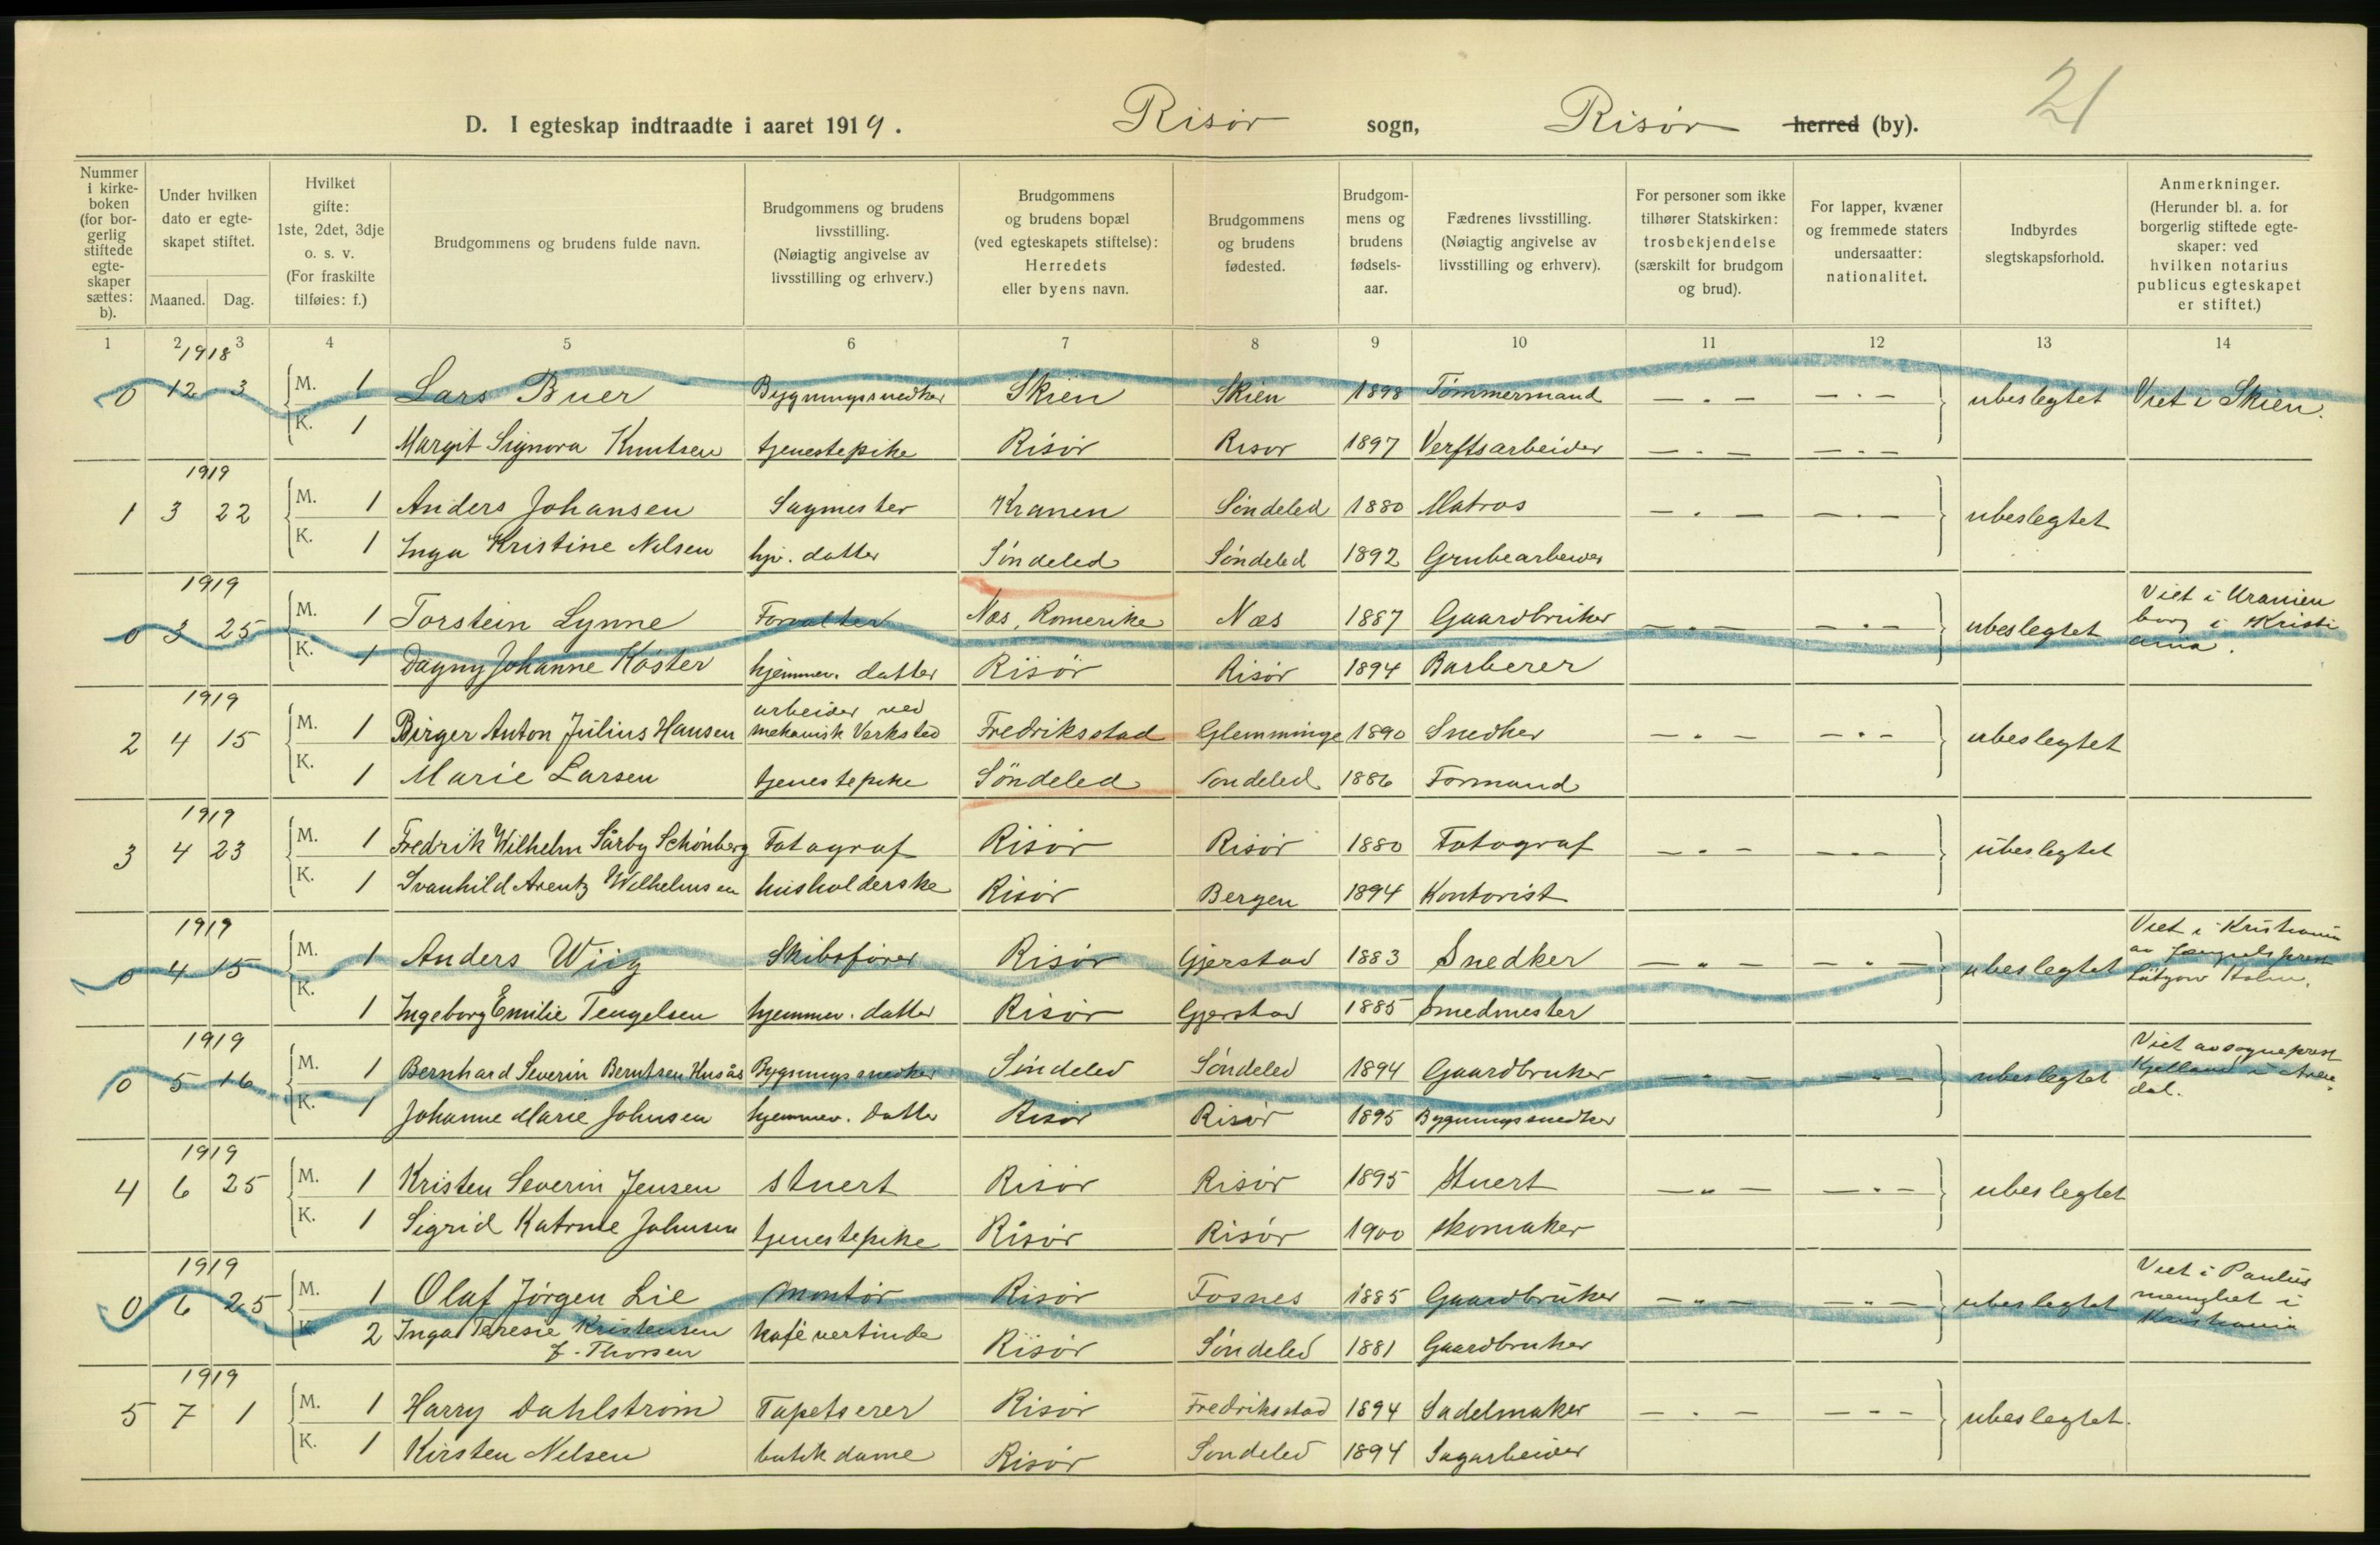 21
D. I egteskap indtraadte i aaret 1919. Risør sogn, Risør herred (by).
Nummer i kirke- boken (for bor- gerlig stiftede egte- skaper sættes: b).
Under hvilken dato er egte- skapet stiftet.
Maaned. Dag.
Hvilket gifte: 1ste, 2det, 3dje o. s. v. (For fraskilte tilføies: f.)
Brudgommens og brudens fulde navn.
Brudgommens og brudens livsstilling. (Nøiagtig angivelse av livsstilling og erhverv.)
Brudgommens og brudens bopæl (ved egteskapets stiftelse): Herredets eller byens navn.
Brudgommens og brudens fødested.
Brudgom- mens og brudens fødsels- aar.
Fædrenes livsstilling. (Nøiagtig angivelse av livsstilling og erhverv).
For personer som ikke tilhører Statskirken: trosbekjendelse (særskilt for brudgom og brud).
For lapper, kvæner og fremmede staters undersaatter: nationalitet.
Indbyrdes slegtskapsforhold.
Anmerkninger. (Herunder bl. a. for borgerlig stiftede egte- skaper: ved hvilken notarius publicus egteskapet er stiftet.)
1 2 3 4 5 6 7 8 9 10 11 12 13 14
1918
0 12 3 M. 1 Lars Buer Bygningssnedker Skien Skien 1898 Tømmermand — . — — . — ubeslegtet Viet i Skien.
K. 1 Margit Signora Knutsen tjenestepike Risør Risør 1897 Verftsarbeider — . — — . —
1919
1 3 22 M. 1 Anders Johansen Sagmester Kranen Søndeled 1880 Matros — . — — . — ubeslegtet
K. 1 Inga Kristine Nilsen hjv. datter Søndeled Søndeled 1892 Grubearbeider
1919
0 3 25 M. 1 Torstein Lynne Forvalter Næs, Romerike Næs 1887 Gaardbruker — . — — . — ubeslegtet Viet i Uranien borg i Kristi ania.
K. 1 Dagny Johanne Køster hjemmev. datter Risør Risør 1894 Barberer
1919
2 4 15 M. 1 Birger Anton Julius Hansen arbeider ved mekanisk Verksted Fredriksstad Glemminge 1890 Snedker — . — — . — ubeslegtet
K. 1 Marie Larsen tjenestepike Søndeled Søndeled 1886 Formand
1919
3 4 23 M. 1 Fredrik Wilhelm Sårby Schønberg Fotograf Risør Risør 1880 Fotograf — . — — . — ubeslegtet
K. 1 Svanhild Arentz Wilhelmsen husholderske Risør Bergen 1894 Kontorist
1919
0 4 15 M. 1 Anders Wiig Skibsfører Risør Gjerstad 1883 Snedker — " — — " — ubeslegtet Viet i Kristiania av Fængselsprest Lützow Holm.
K. 1 Ingeborg Emilie Tengelsen hjemmev. datter Risør Gjerstad 1885 Smedmester
1919
0 5 16 M. 1 Bernhard Severin Berntsen Husås Bygningssnedker Søndeled Søndeled 1894 Gaardbruker — " — — " — ubeslegtet Viet av sogneprest Kjelland i Aren- dal.
K. 1 Johanne Marie Johnsen hjemmev. datter Risør Risør 1895 Bygningssnedker
1919
4 6 25 M. 1 Kristen Severin Jensen Stuert Risør Risør 1895 Stuert — " — — " — ubeslegtet
K. 1 Sigrid Katrine Johnsen tjenestepike Risør Risør 1900 Skomaker
1919
0 6 25 M. 1 Olaf Jørgen Lie Montør Risør Fosnes 1885 Gaardbruker — " — — " — ubeslegtet Viet i Paulus menighet i Kristiania
K. 2 Inga Teresie Kristensen f. Thorsen kafévertinde Risør Søndeled 1881 Gaardbruker
1919
5 7 1 M. 1 Harry Dahlstrøm Tapetserer Risør Fredriksstad 1894 Sadelmaker — . — — " — ubeslegtet.
K. 1 Kirsten Nilsen butikdame Risør Søndeled 1894 Sagarbeider